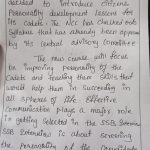 decided to introduce Citizens
Personality development lessons for
its Cadets. The NCC has Chalked out
Syllabus that has already been approved
by its central advisory committee
The new course will focus
on improving personality of the
Cadets and teaching them skills that
would help them in succeeding in
all spheres of life. Effective
Communication plays a major role
in getting selected in the SSB Interview
SSB Interview is about screening
the personality of the Candidate